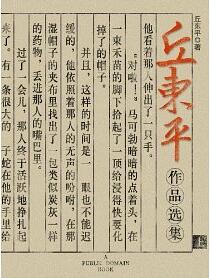 丘东平◎著
丘東平
作品选集
他看着那人伸出了一只手。
“对啦！”马可勃暗暗的点着头，在
一束禾苗的脚下拾起了一顶给浸得快要化
掉了的帽子。
并且，这样的时间是一眼也不能迟
缓的，他依照着那人的无声的吩咐，在那
湿帽子的夹布里找出了一包类似炭灰样
的药物，丢进那人的嘴巴里。
过了一会儿，那人终于活跃地挣扎起
来了。有一条很大的子蛇在他的手里给
A
PUBLIC DOMAIN
BOOK